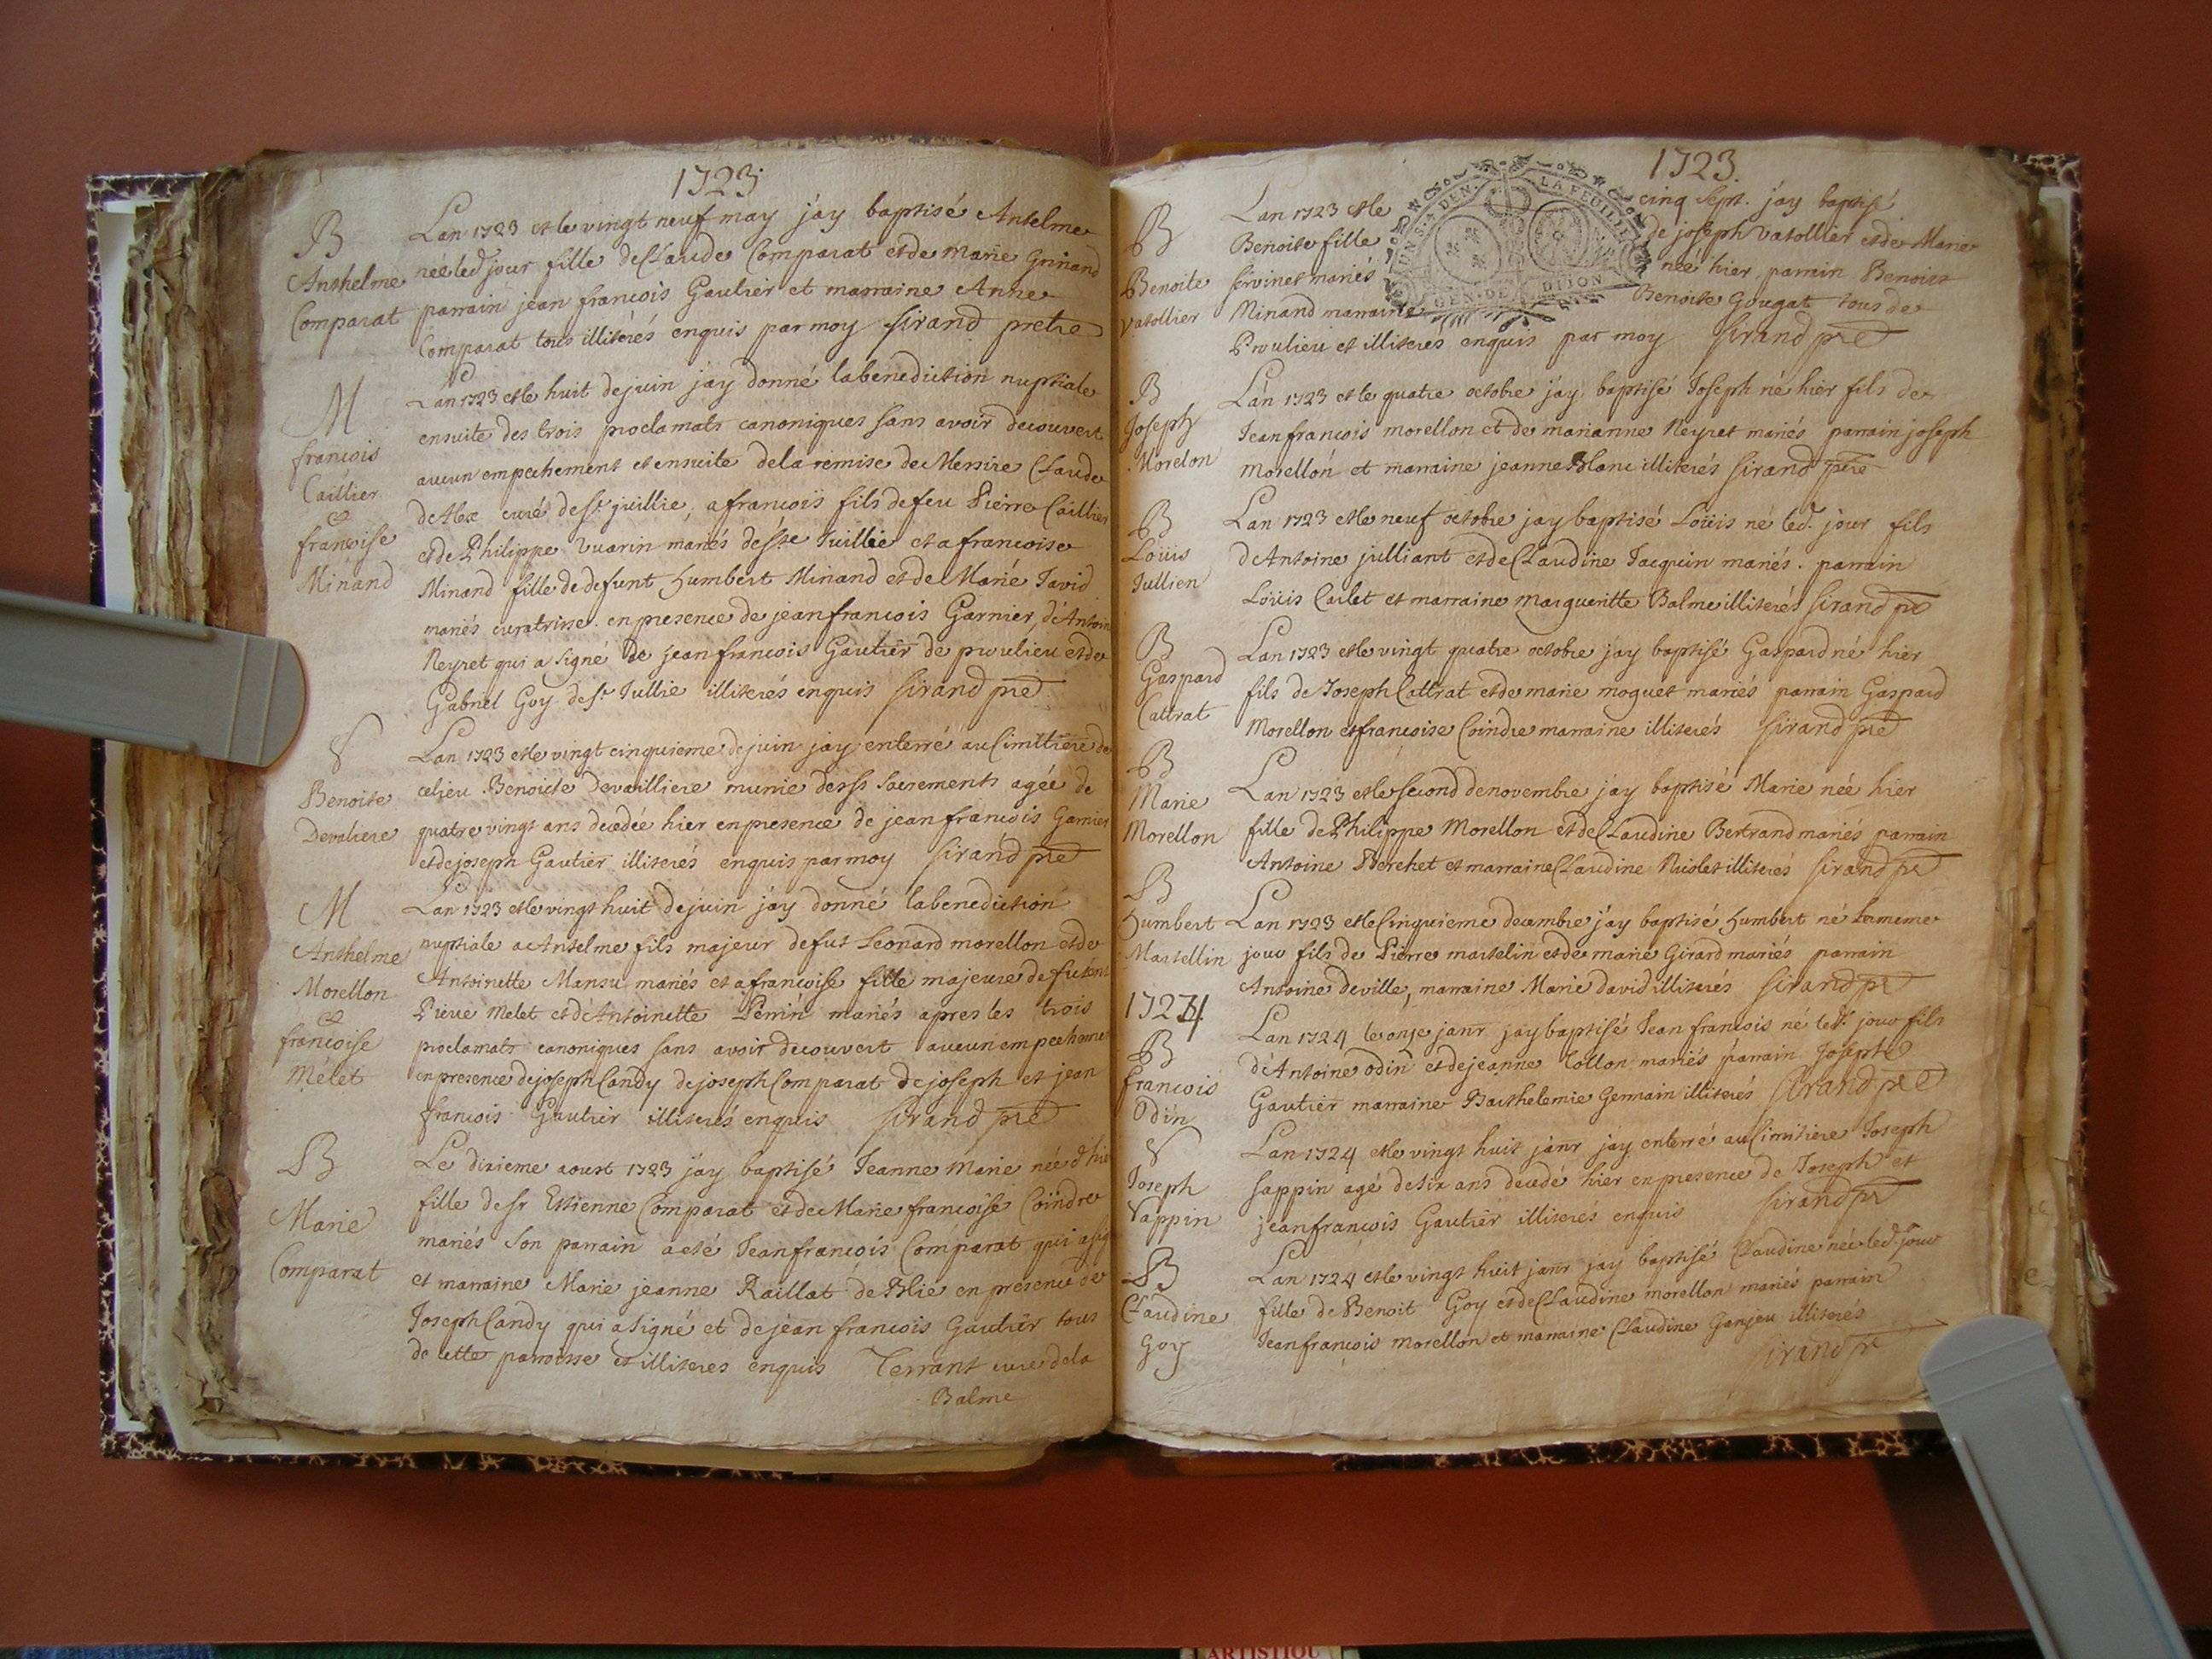 1723
B
Anthelme
Comparat
Lan 1723 et le vingt neuf may jay baptisé Antelme
née led jour fille de Claude Comparat et de Marie Grinand
parrain jean francois Gautier et marraine Anne
Comparat tous illiterés enquis par moy Sirand pretre
M
francois
Caillier
&
francoise
Minand
Lan 1723 et le huit de juin jay donné la benediction nuptiale
ensuite des trois proclamats canoniques sans avoir decouvert
aucun empechement et ensuite de la remise de Messire Claude
curé de St juillie, a francois fils de feu Pierre Caillier
et de Philippe Vuarin mariés de Ste Juillie et a francoise
Minand fille de defunt humbert Minand et de Marie David
mariés curatrisse. en presence de jean francois Garnier, d'Antoin
Neyret qui a signé de jean francois Gautier de proulieu et de
Gabriel Goy de St Jullie illiterés enquis Sirand pre
S
Benoite
Devaliere
Lan 1723 et le vingt cinquieme de juin jay enterré au Cimittiere de
celieu Benoicte Devailliere munie des ss sacrements agée de
quatre vingt ans decedée hier en presence de jean francois Garnier
et de joseph Gautier illiterés enquis par moy Sirand pre
M
Anthelme
Morellon
&
francoise
Mélet
Lan 1723 et le vingt huit de juin jay donné la benediction
nuptiale a Antelme fils majeur de fut Leonard morellon et de
Antoinette Mansu mariés et a francoise fille majeure de
Pierre Melet et d'Antoinette Perrin mariés apres les trois
proclamats canoniques sans avoir decouvert aucun empecheme
en presence de joseph Candy de joseph Comparat de joseph et jean
francois Gautier illiterés enquis Sirand pre
B
Marie
Comparat
Le dixieme aoust 1723 jay baptisé Jeanne Marie née d hie
fille de sr Ettienne Comparat et de Marie francoise Coindre
mariés son parrain a eté Jean francois Comparat qui a sig
et marraine Marie jeanne Raillat de Blie en presence de
Joseph Candy qui a signé et de jean francois Gautier tous
de cette parroisse et illiteres enquis Terrant curé de la
Balme
1723.
UN S. 4 DEN. LA FEUILLE
GEN. DE DIJON
B
Benoite
Vatollier
Lan 1723 et le cinq Sept. jay baptisé
Benoite fille de joseph Vatollier et de Marie
Servinet mariés née hier parrain Benoist
Minand marraine Benoite Gougat tous de
Proulieu et illiteres enquis par moy Sirand pre
B
Joseph
Morelon
Lan 1723 et le quatre octobre jay baptisé Joseph né hier fils de
Jean francois morellon et de marianne Neyret mariés parrain joseph
Morellon et marraine jeanne Blanc illiterés Sirand pre
B
Loüis
Jullien
Lan 1723 et le neuf octobre jay baptisé Loüis né led. jour fils
d'Antoine julliant et de Claudine Jacquin mariés. parrain
Loüis Carlet et marraine margueritte Balme illiterés Sirand pre
B
Gaspard
Cattrat
Lan 1723 et le vingt quatre octobre jay baptisé Gaspard né hier
fils de Joseph Cattrat et de marie moguet mariés parrain Gaspard
Morellon et francoise Coindre marraine illiterés Sirand pre
B
Marie
Morellon
Lan 1723 et le second de novembre jay baptisé Marie née hier
fille de Philippe Morellon et de Claudine Bertrand mariés parrain
Antoine Berchet et marraine Claudine Nicolet illiterés Sirand pr
B
humbert
Martellin
Lan 1723 et le Cinquieme decembre jay baptisé humbert né le meme
jour fils de Pierre martelin et de marie Girard mariés parrain
Antoine deville, marraine Marie david illiterés Sirand pr
1724
B
francois
Odin
Lan 1724 le onze janr jay baptisé Jean francois né led. jour fils
d'Antoine odin et de jeanne Collon mariés parrain Joseph
Gautier marraine Barthelemie Germain illiterés Sirand pre
S
Joseph
Sappin
Lan 1724 et le vingt huit janr jay enterré au Cimitiere Joseph
Sappin agé de six ans decedé hier en presence de Joseph et
jean francois Gautier illiterés enquis Sirand pr
B
Claudine
Goy
Lan 1724 et le vingt huit janr jay baptisé Claudine née led. jour
fille de Benoit Goy et de Claudine morellon mariés parrain
Jean francois morellon et marraine Claudine Ganjeu illiterés
Sirand pr
ARTISTIQU